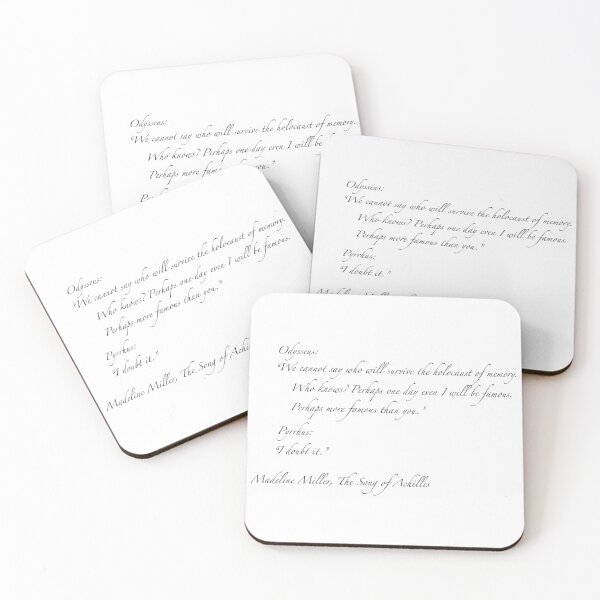 Odysseus:
"We cannot say who will survive the holocaust of memory.
Who knows? Perhaps one day even I will be
Perhaps more famous than you."
Odysseus:
"We cannot say who will survive the holocaust of memory.
Who knows? Perhaps one day even I will be famous.
Perhaps more famous than you."
Pyrrhus:
"I doubt it."
Madeline
Odysseus:
"We cannot say who will survive the holocaust of memory.
Who knows? Perhaps one day even I will be famous.
Perhaps more famous than you."
Pyrrhus:
"I doubt it."
Madeline Miller, The Song of
Odysseus:
"We cannot say who will survive the holocaust of memory.
Who knows? Perhaps one day even I will be famous.
Perhaps more famous than you."
Pyrrhus:
"I doubt it."
Madeline Miller, The Song of Achilles